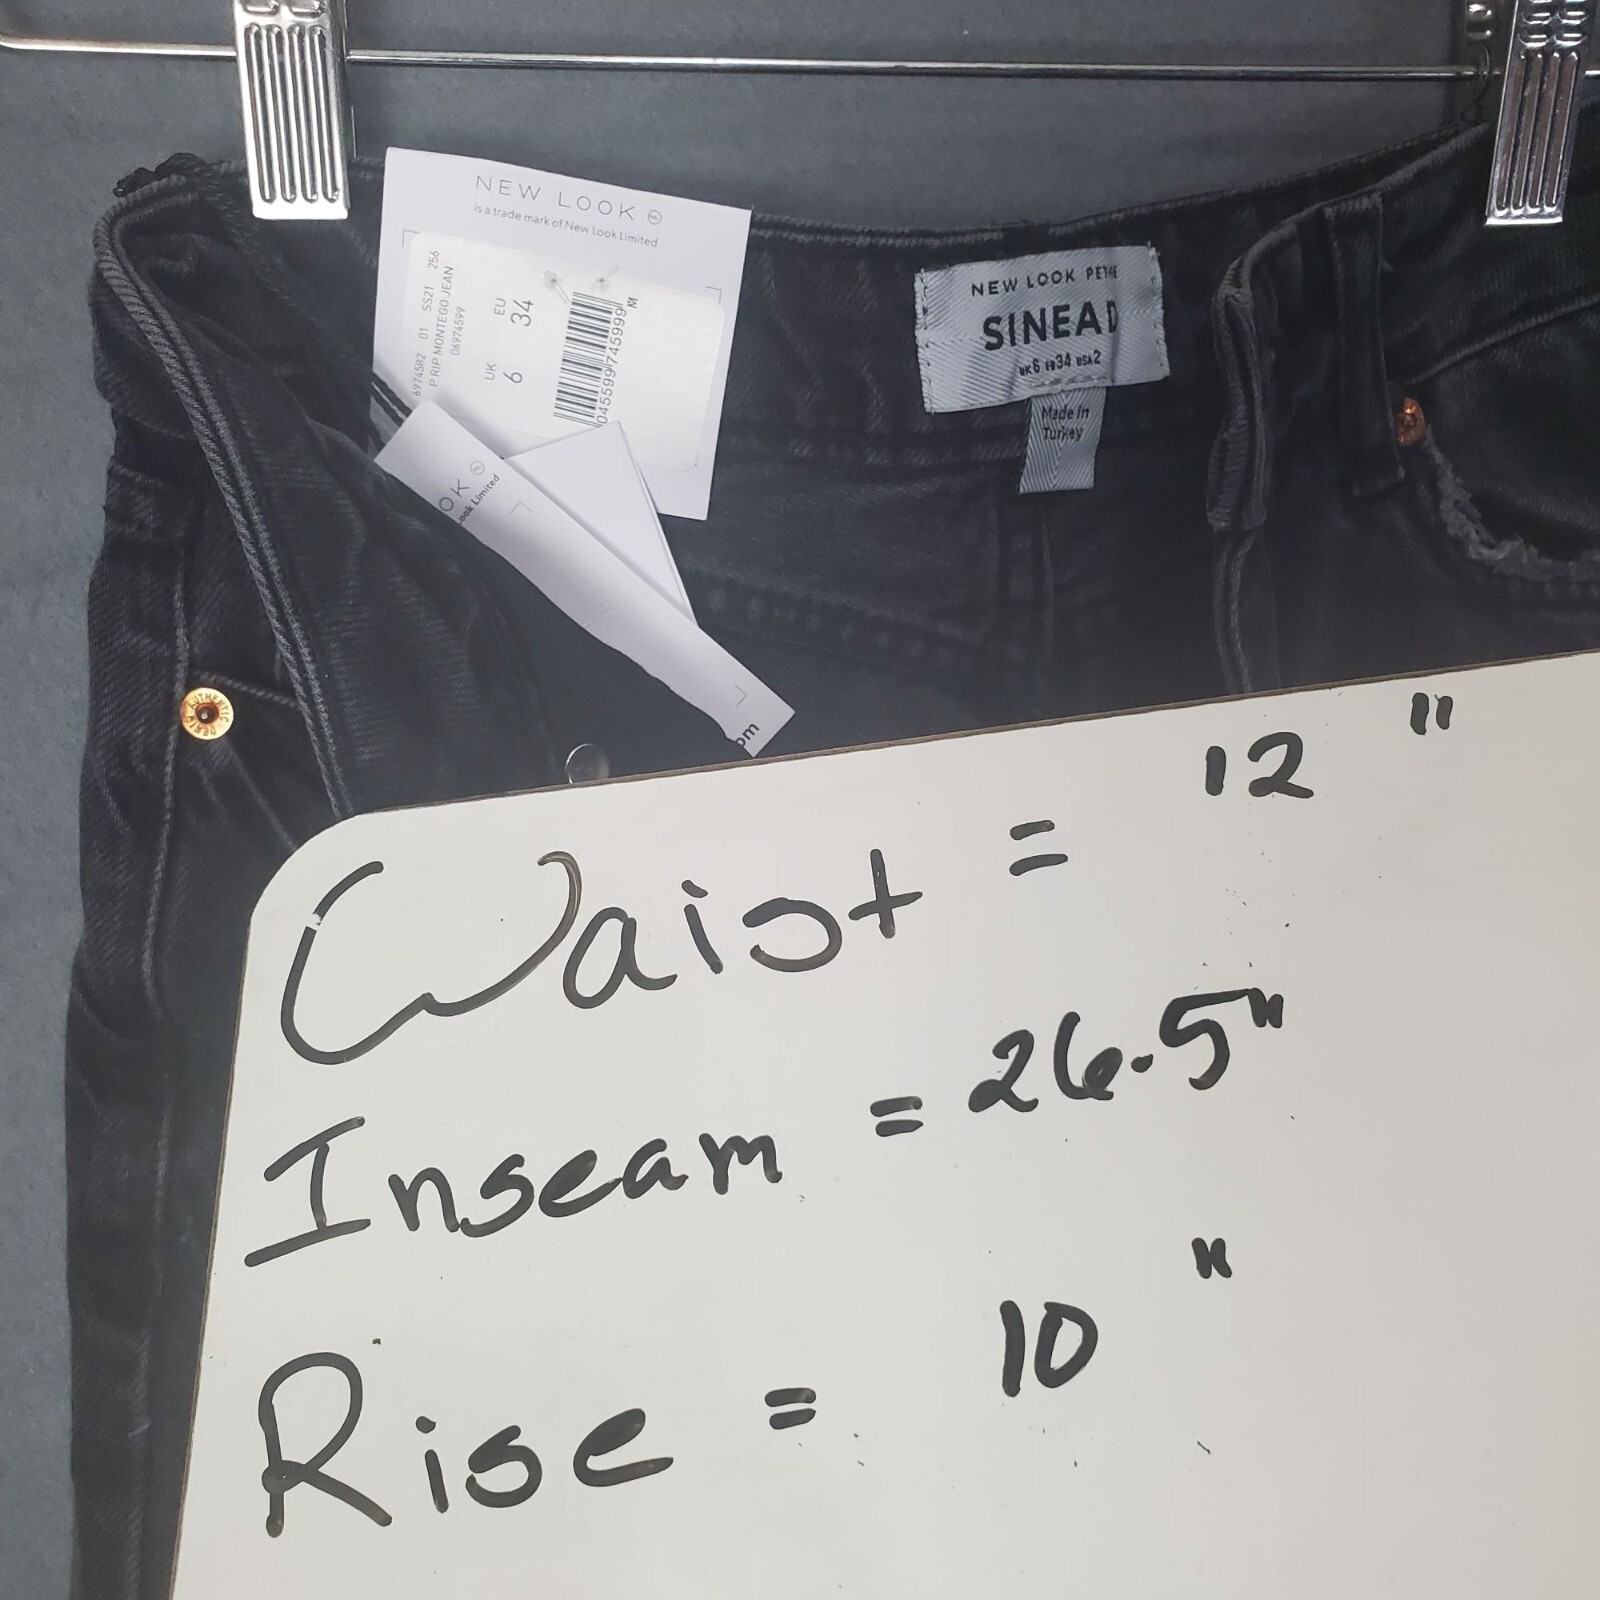 NEW LOOK NL
is a trade mark of New Look Limited
6974582 01 SS21 256
P RIP MONTEGO JEAN
06974599
UK EU
6 34
045599745999
M
OK NL
ook Limited
om
NEW LOOK PETITE
SINEAD
UK6 EU34 USA2
Made In
Turkey
AUTHENTIC DENIM
Waist = 12 "
Inseam = 26.5"
Rise = 10 "